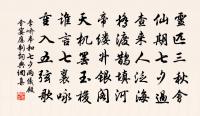 靈匹三秋會
仙期七夕過
查來人泛海
橋渡鵲填河
帝縷升銀閣
天機罷玉梭
誰言七襄詠
重入五弦歌
李嶠奉和七夕兩儀殿
會宴應制詞典網集